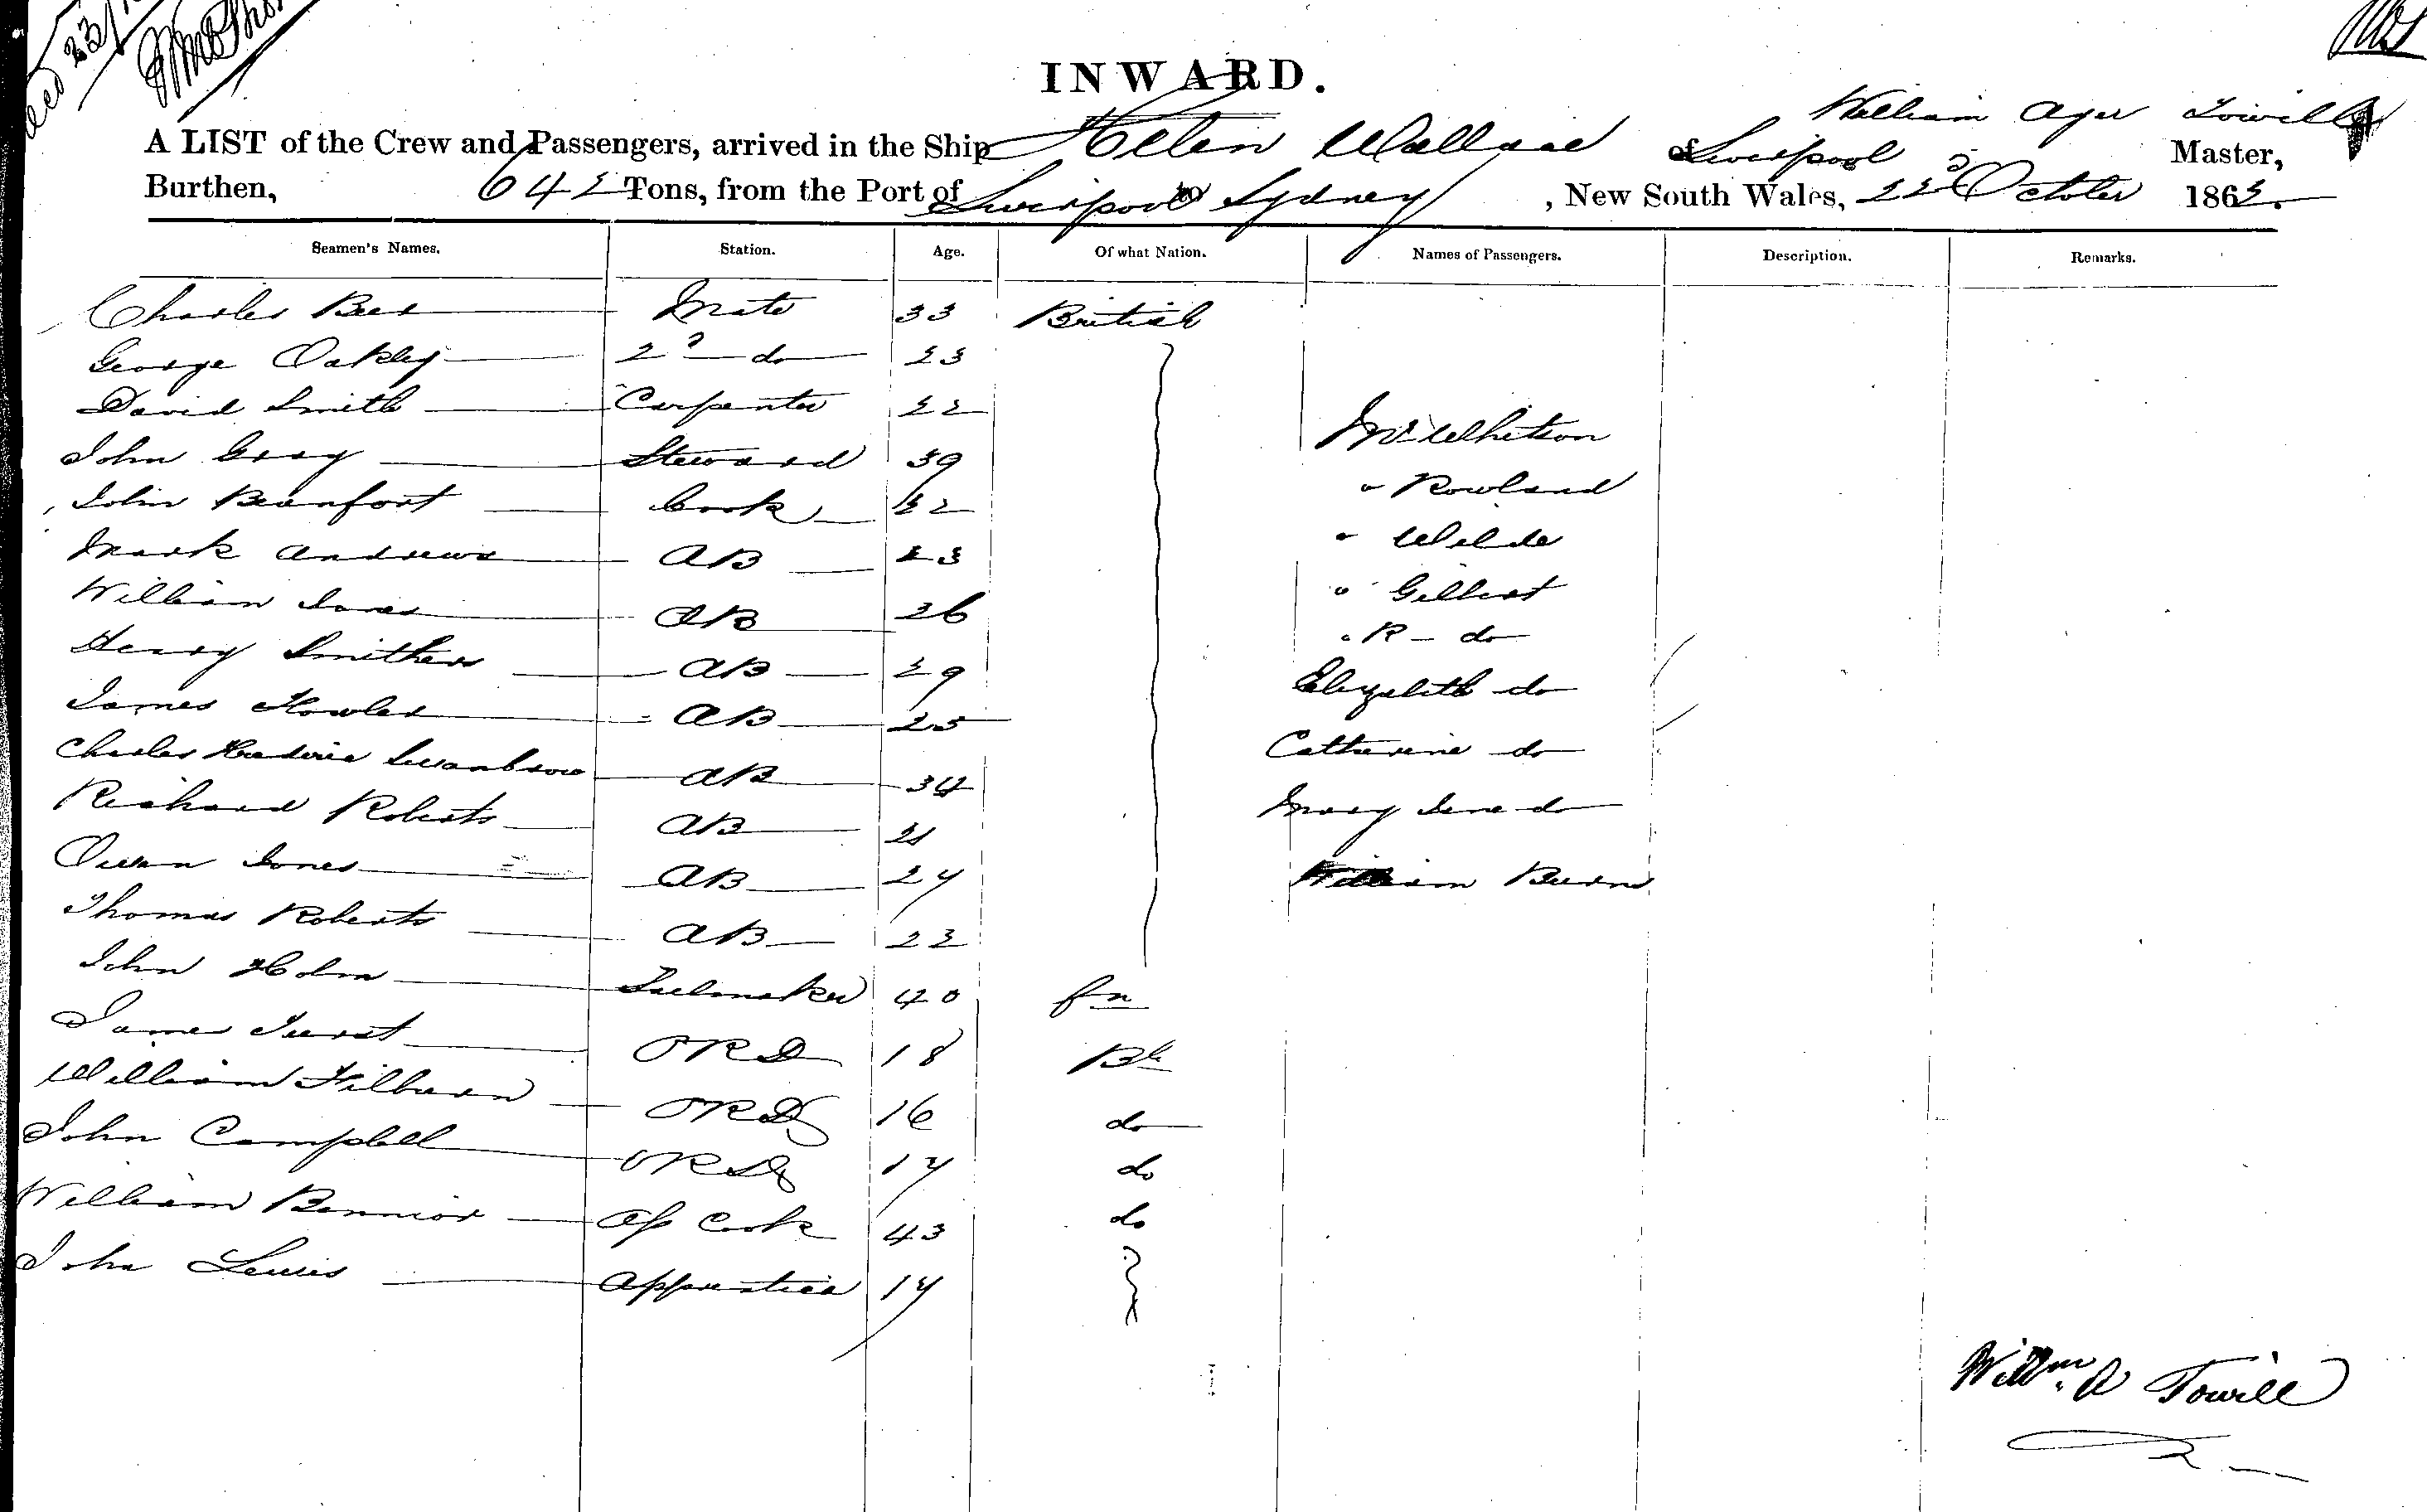 INWARD.
William Ager Towill
A LIST of the Crew and Passengers, arrived in the Ship Helen Wallace of Liverpool Master,
Burthen, 642 Tons, from the Port of Liverpool to Sydney, New South Wales, 22d October 1862.
Seamen's Names. Station. Age. Of what Nation. Names of Passengers. Description. Remarks.
Charles Bees Mate 33 British
George Oakley 2d do 23
David Smith Carpenter 22
Mr Whitson
John Gray Steward 39
" Rowland
John Beaufort Cook 22
" Wilde
Mark Andrews AB 23
" Gilbert
William Jones AB 26
" R - do
Henry Smithers AB 29
Elizabeth do
James Fowler AB 25
Catherine do
Charles Frederic Swanbrow AB 34
Mary Jane do
Richard Roberts AB 21
Owen Jones AB 24
William Burns
Thomas Roberts AB 22
John Holm Sailmaker 40 fn
James Turst ORD 18 Bh
William Hilburn ORD 16 do
John Campbell ORD 17 do
William Bennior Ap Cook 43 do
John Lewis Apprentice 17
Willm. A Towill